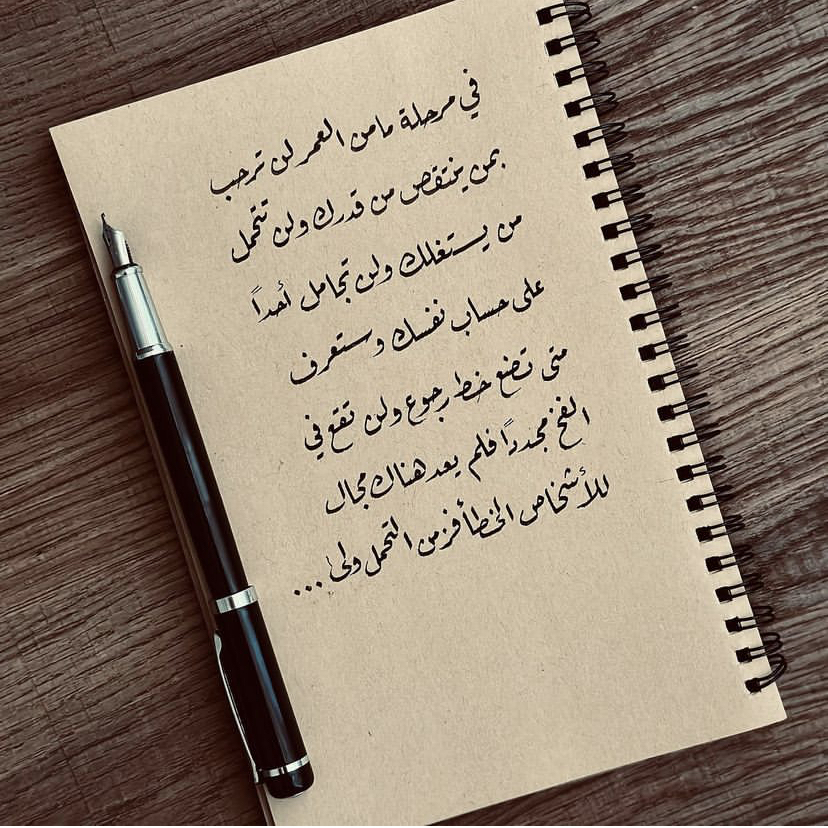 في مرحلة ما من العمر لن ترحب
بمن ينتقص من قدرك ولن تتحمل
من يستغلك ولن تجامل أحداً
على حساب نفسك وستعرف
متى تضع خط رجوع ولن تقع في
الفخ مجدداً فلم يعد هناك مجال
للأشخاص الخطأ فزمن التحمل ولى ...